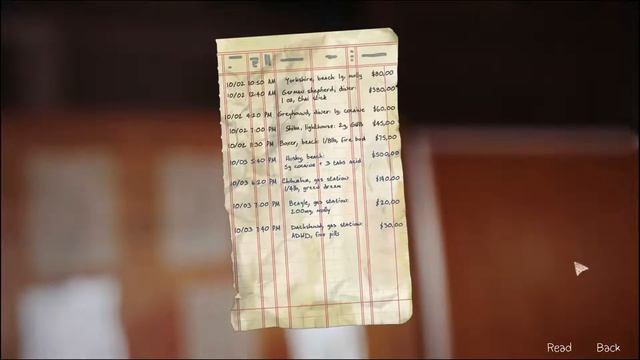 10/02 10:50 AM Yorkshire, beach 1g, molly $80.00
10/02 12:40 AM German shepherd, diner:
1 oz, thai stick $380.00
10/02 4:20 PM Greyhound, diner: 1g, cocaine $60.00
10/02 7:00 PM Shiba, lighthouse: 2g, $45.00
10/02 11:30 PM beach: 1/8lb, fire bud $75.00
10/03 5:40 PM Husky, beach:
5g cocaine + 3 tabs acid $500.00
10/03 6:20 PM Chihuahua, gas station:
1/4lb, green dream $140.00
10/03 7:00 PM Beagle, gas station:
200mg, molly $20.00
10/03 7:40 PM Dachshund, gas station:
ADHD, pills $30.00
Read Back